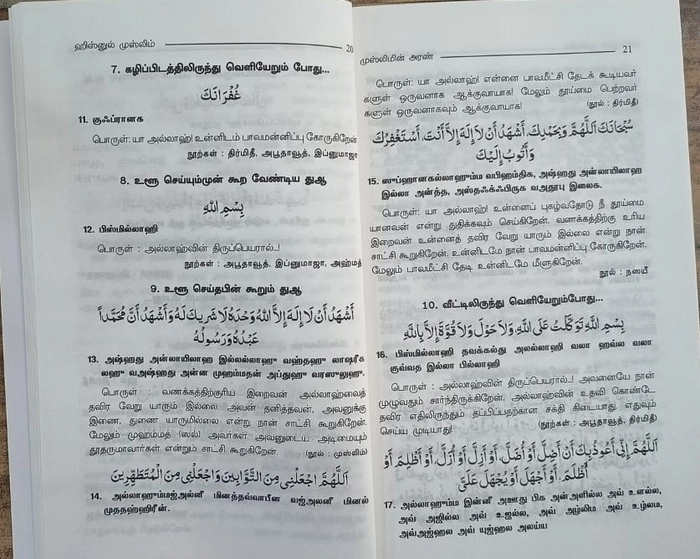 ஹிஸ்னுல் முஸ்லிம்
20
7. கழிப்பிடத்திலிருந்து வெளியேறும் போது...
غُفْرَانَكَ
11. குஃப்ரானக
பொருள்: யா அல்லாஹ்! உன்னிடம் பாவமன்னிப்பு கோருகிறேன்
நூற்கள் : திர்மிதீ, அபூதாவூத், இப்னுமாஜா
8. உளூ செய்யும்முன் கூற வேண்டிய துஆ
بِسْمِ اللَّهِ
12. பிஸ்மில்லாஹி
பொருள் : அல்லாஹ்வின் திருப்பெயரால்..!
நூற்கள் : அபூதாவூத், இப்னுமாஜா, அஹ்மத்
9. உளூ செய்தபின் கூறும் துஆ
أَشْهَدُ أَنْ لَا إِلَهَ إِلَّا اللَّهُ وَحْدَهُ لَا شَرِيكَ لَهُ وَأَشْهَدُ أَنَّ مُحَمَّداً
عَبْدُهُ وَرَسُولُهُ
13. அஷ்ஹது அன்லாயிலாஹ இல்லல்லாஹு வஹ்தஹு லாஷரீக
லஹு வஅஷ்ஹது அன்ன முஹம்மதன் அப்துஹு வரஸுலுஹு.
பொருள் : வணக்கத்திற்குரிய இறைவன் அல்லாஹ்வைத்
தவிர வேறு யாரும் இல்லை. அவன் தனித்தவன், அவனுக்கு
இணை, துணை யாருமில்லை என்று நான் சாட்சி கூறுகிறேன்.
மேலும் முஹம்மத் (ஸல்) அவர்கள் அவனுடைய அடிமையும்
தூதருமாவார்கள் என்றும் சாட்சி கூறுகிறேன். (நூல் : முஸ்லிம்)
اَللَّهُمَّ اجْعَلْنِي مِنَ التَّوَّابِينَ وَاجْعَلْنِي مِنَ الْمُتَطَهِّرِينَ
14. அல்லாஹும்மஜ்அல்னீ மினத்தவ்வாபீன வஜ்அலனீ மினல்
முததஹ்ஹிரீன்.
முஸ்லிமின் அரண்
21
பொருள்: யா அல்லாஹ்! என்னை பாவமீட்சி தேடக் கூடியவர்
களுள் ஒருவனாக ஆக்குவாயாக! மேலும் தூய்மை பெற்றவர்
களுள் ஒருவனாகவும் ஆக்குவாயாக! (நூல் : திர்மிதீ)
سُبْحَانَكَ اللَّهُمَّ وَبِحَمْدِكَ، أَشْهَدُ أَنْ لَا إِلَهَ إِلَّا أَنْتَ، أَسْتَغْفِرُكَ
وَأَتُوبُ إِلَيْكَ
15. ஸுப்ஹானகல்லாஹும்ம வபிஹம்திக, அஷ்ஹது அன்லாயிலாஹ
இல்லா அன்த்த, அஸ்தஃக்ஃபிருக வஅதூபு இலைக.
பொருள்: யா அல்லாஹ்! உன்னைப் புகழ்வதோடு நீ தூய்மை
யானவன் என்று துதிக்கவும் செய்கிறேன். வணக்கத்திற்கு உரிய
இறைவன் உன்னைத் தவிர வேறு யாரும் இல்லை என்று நான்
சாட்சி கூறுகிறேன். உன்னிடமே நான் பாவமன்னிப்பு கோருகிறேன்.
மேலும் பாவமீட்சி தேடி உன்னிடமே மீளுகிறேன்.
நூல் : நஸயீ
10. வீட்டிலிருந்து வெளியேறும்போது...
بِسْمِ اللَّهِ تَوَكَّلْتُ عَلَى اللَّهِ، وَلَا حَوْلَ وَلَا قُوَّةَ إِلَّا بِاللَّهِ
16. பிஸ்மில்லாஹி தவக்கல்து அலல்லாஹி வலா ஹவ்ல வலா
குவ்வத இல்லா பில்லாஹி
பொருள் : அல்லாஹ்வின் திருப்பெயரால்..! அவனையே நான்
முழுவதும் சார்ந்திருக்கிறேன். அல்லாஹ்வின் உதவி கொண்டே
தவிர எதிலிருந்தும் தப்பிப்பதற்கான சக்தி கிடையாது. எதுவும்
செய்ய முடியாது! (நூற்கள் : அபூதாவூத், திர்மிதீ)
اَللَّهُمَّ إِنِّي أَعُوذُ بِكَ أَنْ أَضِلَّ أَوْ أُضَلَّ، أَوْ أَزِلَّ أَوْ أُزَلَّ، أَوْ أَظْلِمَ، أَوْ
أُظْلَمَ، أَوْ أَجْهَلَ أَوْ يُجْهَلَ عَلَيَّ
17. அல்லாஹும்ம இன்னீ அஊது பிக அன்அளில்ல அவ் உளல்ல,
அவ் அஜில்ல அவ் உஜல்ல, அவ் அழ்லிம அவ் உழ்லம,
அவ்அஜ்ஹல அவ் யுஜ்ஹல அலய்ய